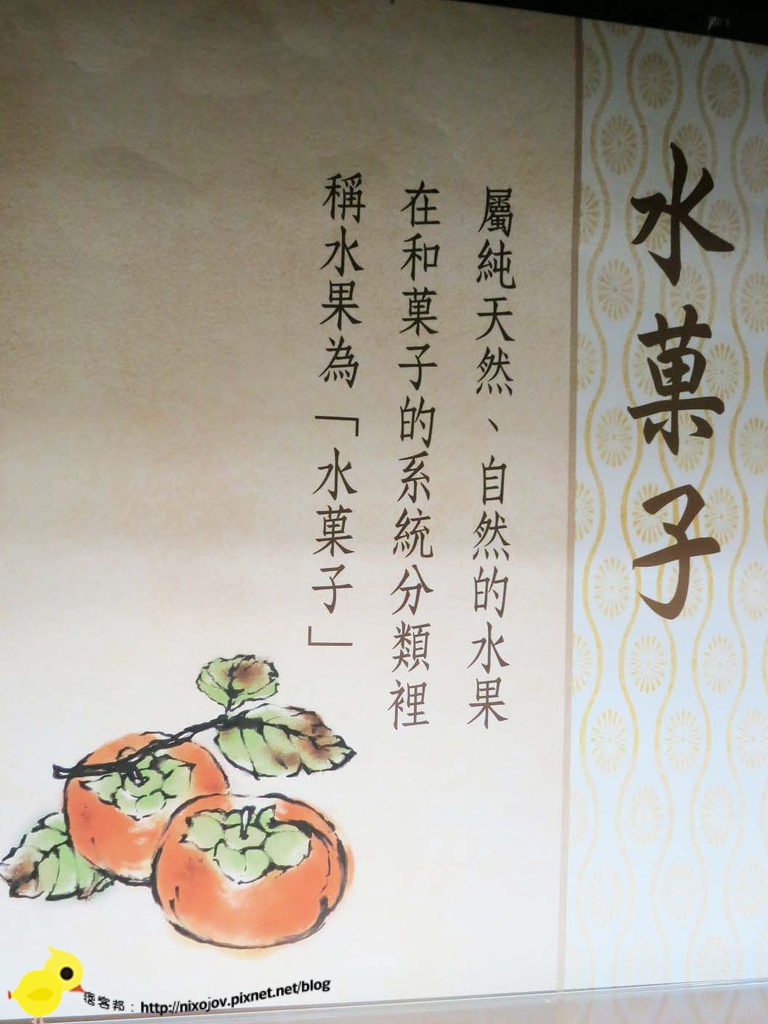 水菓子
屬純天然、自然的水果
在和菓子的系統分類裡
稱水果為「水菓子」
痞客邦：http://nixojov.pixnet.net/blog